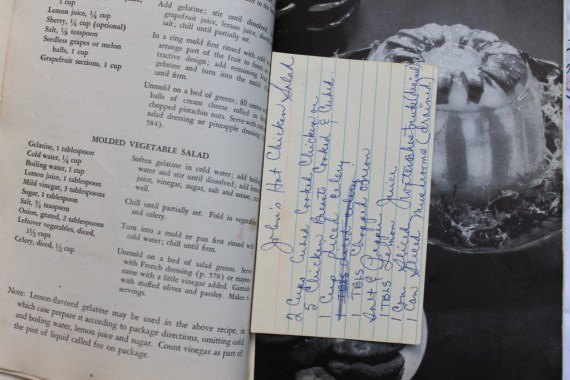 Lemon juice, ¼ cup
Sherry, ¼ cup (optional)
Salt, ⅛ teaspoon
Seedless grapes or melon
balls, 1 cup
Grapefruit sections, 1 cup
Add gelatine; stir until dissolved
grapefruit juice, lemon juice,
salt; chill until partially set.
In a ring mold first rinsed with cold
arrange part of the fruit to form
tractive design; add remaining
gelatine and turn into the mold
until firm.
Unmold on a bed of greens; fill center
balls of cream cheese rolled in
chopped pistachio nuts. Serve with
salad dressing or pineapple dressing
584).
MOLDED VEGETABLE SALAD
Gelatine, 1 tablespoon
Cold water, ¼ cup
Boiling water, 1 cup
Lemon juice, 1 tablespoon
Mild vinegar, 3 tablespoons
Sugar, 1 tablespoon
Salt, ¾ teaspoon
Onion, grated, 2 tablespoons
Leftover vegetables, diced,
1½ cups
Celery, diced, ½ cup
Soften gelatine in cold water; add
water and stir until dissolved; add
juice, vinegar, sugar, salt and onion;
well.
Chill until partially set. Fold in
and celery.
Turn into a mold or pan first rinsed
cold water; chill until firm.
Unmold on a bed of salad greens. Serve
with French dressing (p. 578) or
naise with a little vinegar added. Garnish
with stuffed olives and parsley. Makes 6
servings.
Note: Lemon-flavored gelatine may be used in the above recipe, in
which case prepare it according to package directions, omitting cold
and boiling water, lemon juice and sugar. Count vinegar as part of
the pint of liquid called for on package.
John's Hot Chicken Salad
2 Cups Cubed Cooked Chicken or
5 Chicken Breasts Cooked & Cubed.
1 Cup Diced Celery
1 TBLS
1 TBLS Chopped Onion
Salt & Pepper
1 TBLS Lemon Juice
1 Can Sliced Waterchestnuts (drained)
1 Can Sliced Mushrooms (drained)